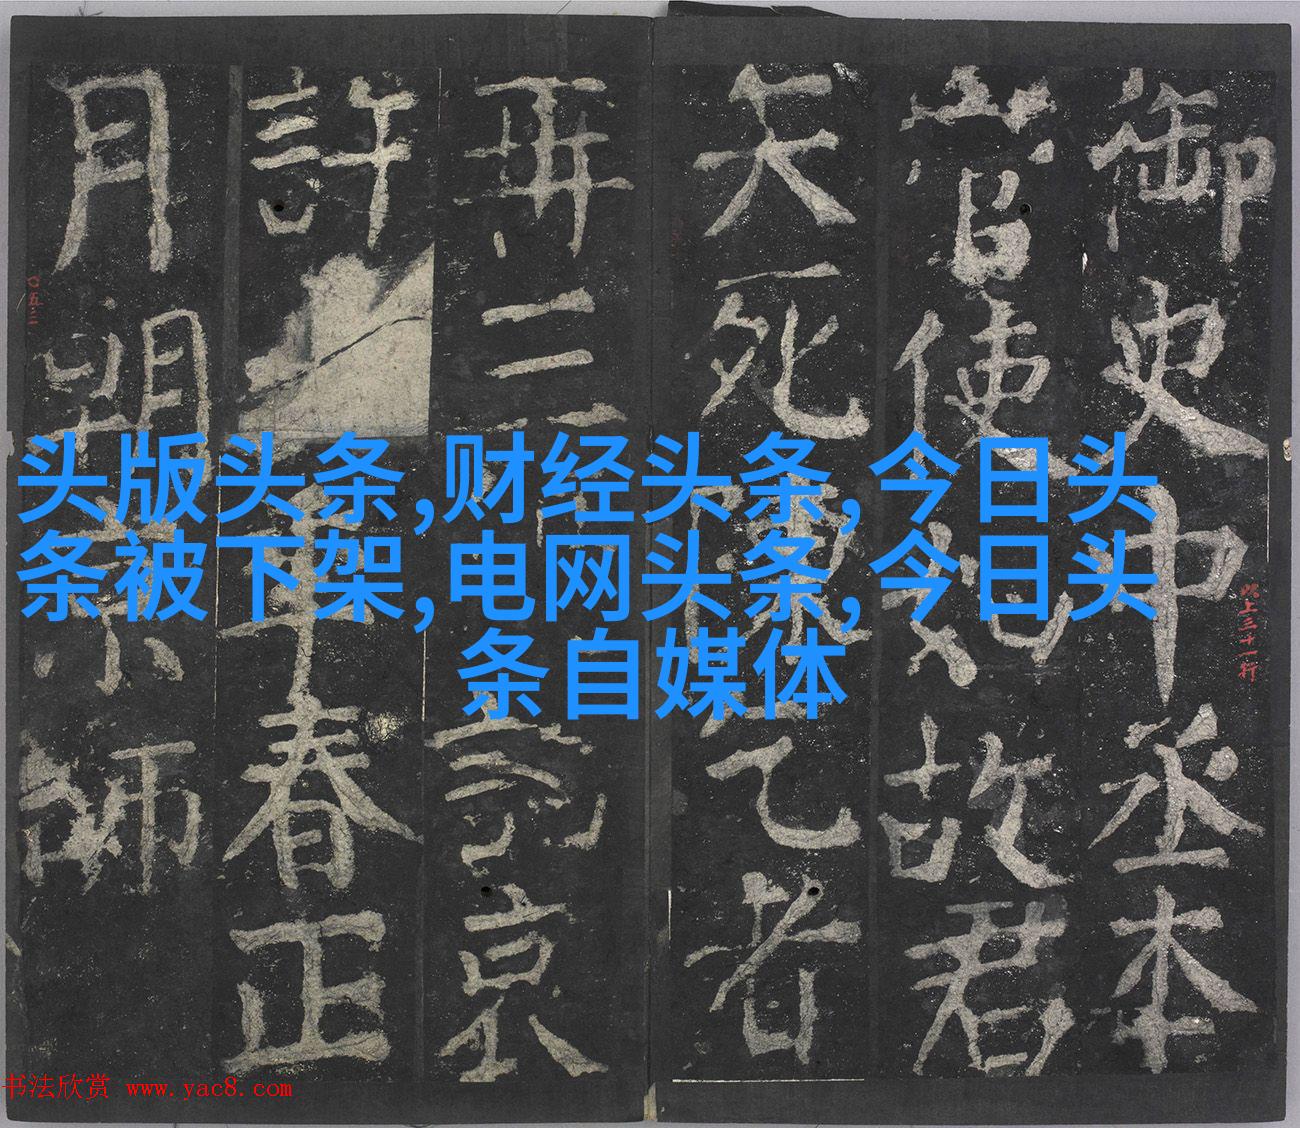 御史中丞本
使故君
死乙者
再三京
許年春正
月朔京師
以上三十一行
〇五三
头版头条,财经头条,今日头
条被下架,电网头条,今日头
条自媒体
书法欣赏 www.yac8.com